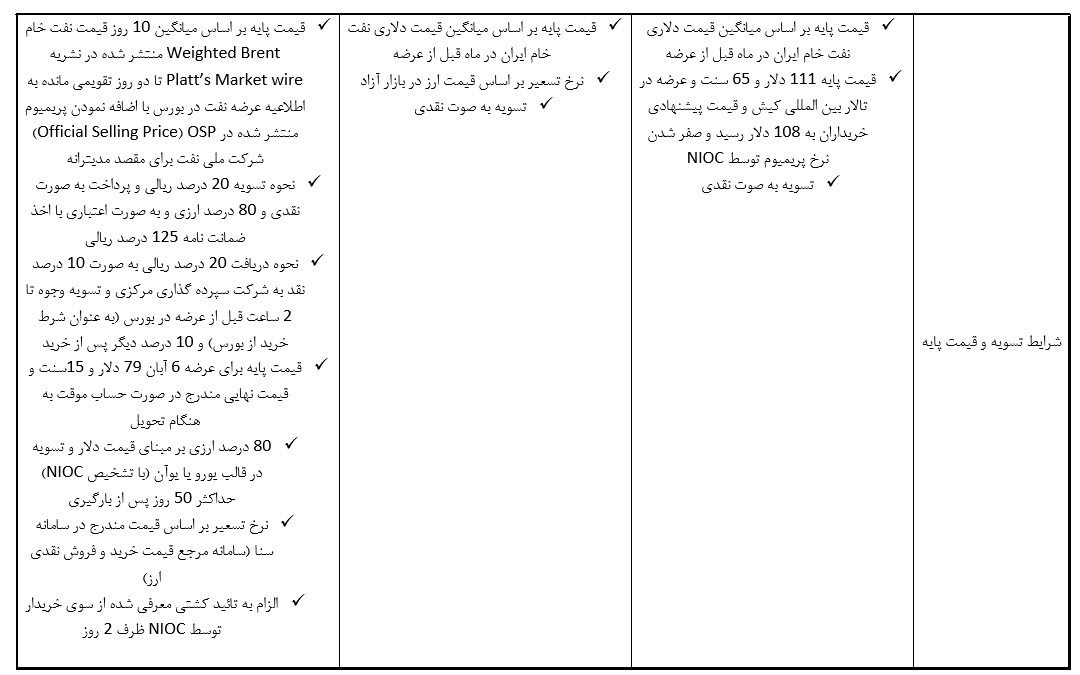 شرایط تسویه و قیمت پایه
✓ قیمت پایه بر اساس میانگین قیمت دلاری
نفت خام ایران در ماه قبل از عرضه
✓ قیمت پایه 111 دلار و 65 سنت و عرضه در
تالار بین المللی کیش و قیمت پیشنهادی
خریداران به 108 دلار رسید و صفر شدن
نرخ پریمیوم توسط NIOC
✓ تسویه به صوت نقدی
✓ قیمت پایه بر اساس میانگین قیمت دلاری نفت
خام ایران در ماه قبل از عرضه
✓ نرخ تسعیر بر اساس قیمت ارز در بازار آزاد
✓ تسویه به صوت نقدی
✓ قیمت پایه بر اساس میانگین 10 روز قیمت نفت خام
Weighted Brent منتشر شده در نشریه
Platt’s Market wire تا دو روز تقویمی مانده به
اطلاعیه عرضه نفت در بورس با اضافه نمودن پریمیوم
منتشر شده در OSP (Official Selling Price)
شرکت ملی نفت برای مقصد مدیترانه
✓ نحوه تسویه 20 درصد ریالی و پرداخت به صورت
نقدی و 80 درصد ارزی و به صورت اعتباری با اخذ
ضمانت نامه 125 درصد ریالی
✓ نحوه دریافت 20 درصد ریالی به صورت 10 درصد
نقد به شرکت سپرده گذاری مرکزی و تسویه وجوه تا
2 ساعت قبل از عرضه در بورس (به عنوان شرط
خرید از بورس) و 10 درصد دیگر پس از خرید
✓ قیمت پایه برای عرضه 6 آبان 79 دلار و 15سنت و
قیمت نهایی مندرج در صورت حساب موقت به
هنگام تحویل
✓ 80 درصد ارزی بر مبنای قیمت دلار و تسویه
در قالب یورو یا یوآن (با تشخیص NIOC)
حداکثر 50 روز پس از بارگیری
✓ نرخ تسعیر بر اساس قیمت مندرج در سامانه
سنا (سامانه مرجع قیمت خرید و فروش نقدی
ارز)
✓ الزام به تائید کشتی معرفی شده از سوی خریدار
توسط NIOC ظرف 2 روز